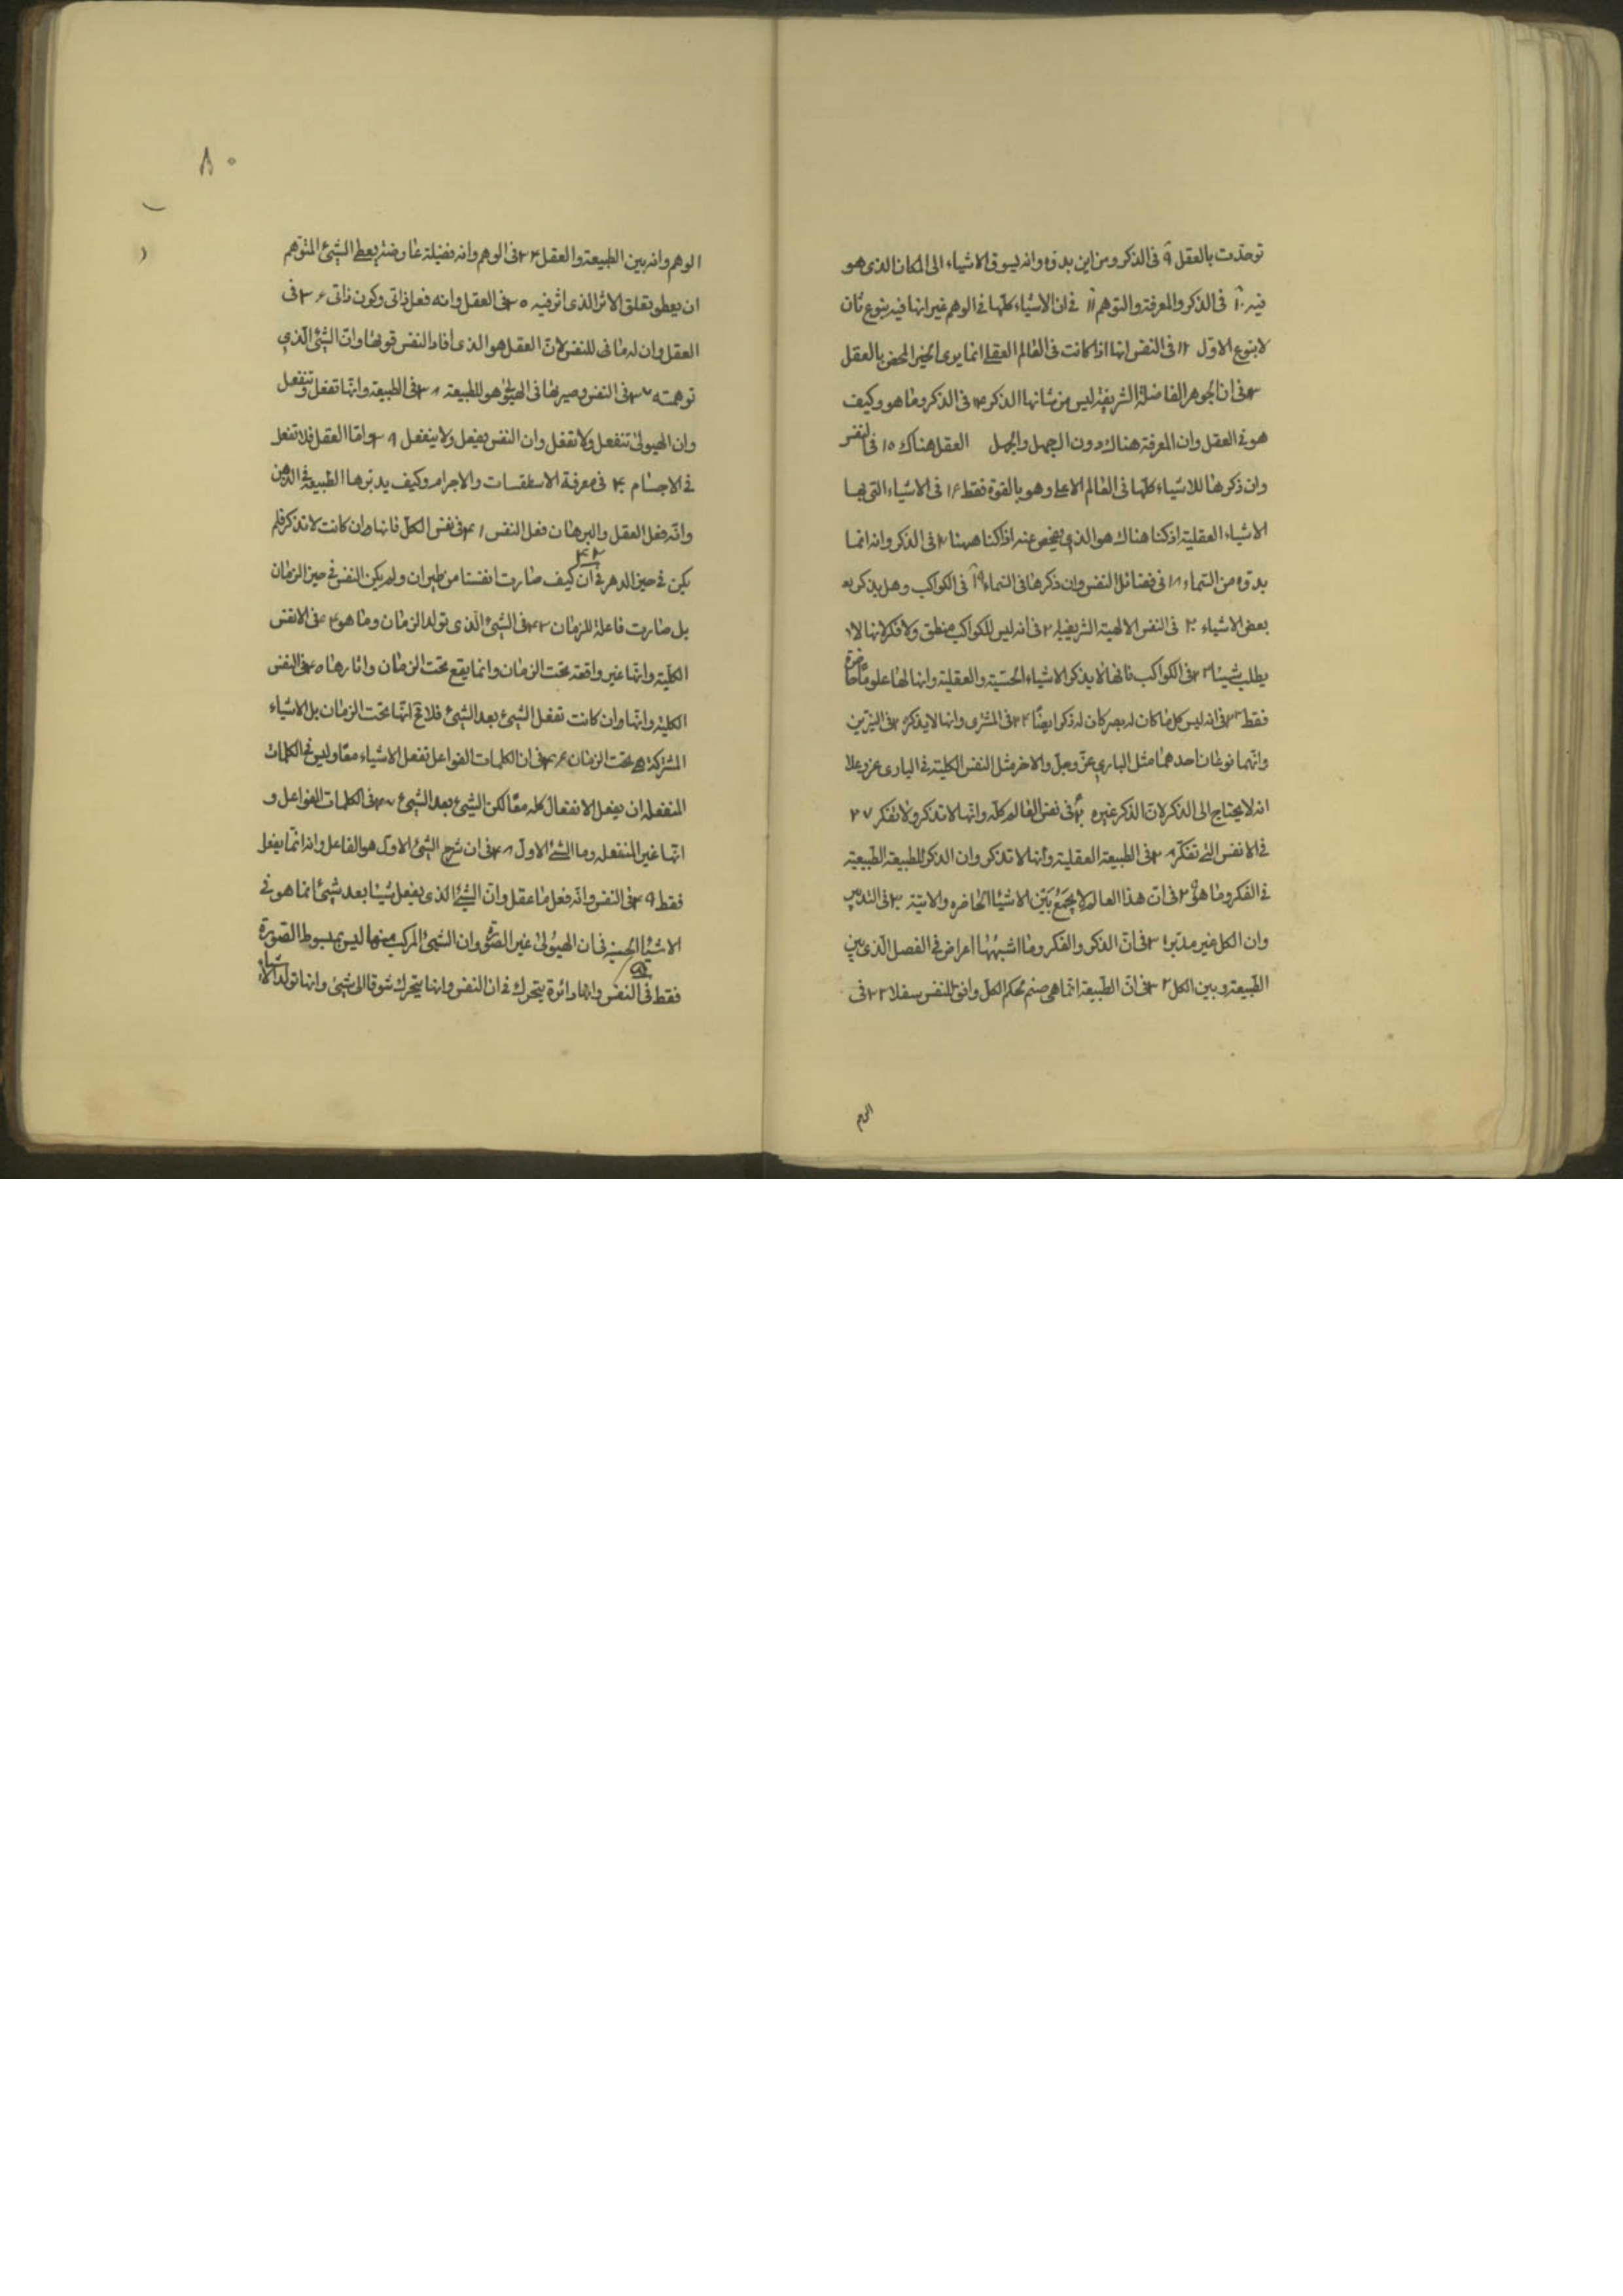 توحّدت بالعقل ٩ فى الذكر ومن اين بدؤه وانه يسوق الاشياء الى المكان الذى هو
فيه ١٠ فى الذكر والمعرفة والتوهم ١١ فى ان الاشياء كلّها فى الوهم غير انها فيه بنوع ثان
لا بنوع الاوّل ١٢ فى النفس انها اذا كانت فى العالم العقلى انما يرى الخير المحض بالعقل
١٣ فى ان الجوهر الفاضلة الشريفة ليس من شانها الذكر ١٤ فى الذكر وما هو وكيف
هو فى العقل وان المعرفة هناك دون الجهل والجهل العقل هناك ١٥ فى النفس
وان ذكرها للاشياء كلّها فى العالم الاعلى وهو بالقوة فقط ١٦ فى الاشياء التى بها
الاشياء العقلية اذ كنا هناك هو الذى نفحص عنه اذا كنا ههنا فى الذكر وانه انما
بدؤه من السماء ١٨ فى فضائل النفس وان ذكرها فى السماء ١٩ فى الكواكب وهل يذكر
بعض الاشياء ٢٠ فى النفس الالهية الشريفة فى انه ليس للكواكب منطق ولا فكر لانها لا
يطلب شيئا ٢٢ فى الكواكب فانها لا يذكر الاشياء الحسّيّة والعقلية وانها لها علوما حاضرة
فقط ٢٣ فى انه ليس كل ما كان له بصر كان له ذكر ايضًا ٢٤ فى المشترى وانها لا يذكر فى النيّرين
وانّهما نوعان احدهما مثل البارى عزّ وجلّ والاخر مثل النفس الكلية فى البارى عز وعلا
انه لا يحتاج الى الذكر لان الذكر غيره فى نفس العالم كلّه وانّها لا تذكر ولا تفكر ٢٧
فى الانفس التى تفكّر ٢٨ فى الطبيعة العقلية وأنها لا تذكر وان الذكر للطبيعة الطبيعيّة
فى الفكر وما هو ٢٩ فى انّ هذا العالم لا يجمع بين الاشياء الحاضره والاتية ٣٠ فى التدبير
وان الكل غير مدبّر ٣١ فى انّ الذكر والفكر وما اشبهها اعراض فى الفصل الّذى بين
الطّبيعة وبين الكل ٣٢ فى انّ الطّبيعة انّما هى صنم لحكم الكل وافق للنفس سفلا ٣٣ فى
الوهم
٨٠
الوهم وانه بين الطبيعة والعقل ٣٤ فى الوهم وانه فضيلة عارضة يعطى الشيئ المتوهم
ان يعلو بتعلق الاثر الذى اثر فيه ٣٥ فى العقل وانه فعل ذاتى وكون ذاتى ٣٦ فى
العقل وان له ما فى للنفس لانّ العقل هو الذى افاد النفس قوتها وانّ الشيئ الّذى
توهمته ٣٧ فى النفس وصيرتها فى الهيولى هو للطبيعة ٣٨ فى الطبيعة وانّها تفعل وتنفعل
وان الهيولى تنفعل ولا تفعل وان النفس يفعل ولا ينفعل ٣٩ واما العقل فلا تفعل
فى الاجسام ٤٠ فى معرفة الاسطقسات والاجرام وكيف يدبّرها الطبيعة فى الذهن
وانّه فعل العقل والبرهان فعل النفس ٤١ فى نفس الكلّ فانها وان كانت لا تذكر فلم
٤٢
يكن فى حيز الدهر فى ان كيف صارت انفسنا من حيز ان ولم يكن النفس فى حيز الزمان
بل صارت فاعلة للزمان ٤٣ فى الشيئ الّذى تولد الزمان وما هو ٤٤ فى الانفس
الكلّية وانّها غير واقعة تحت الزمان وانما يقع تحت الزمان واثارها ٤٥ فى النفس
الكلية وانّها وان كانت تفعل الشيئ بعد الشيئ فلا تح انّها تحت الزمان بل الاشياء
المشتركة هى تحت الزمان ٤٦ فى ان الكلمات الفواعل تفعل الاشياء معًا وليس فى الكلمات
المنفعله ان يفعل الانفعال كله معًا لكن الشيئ بعد الشيئ ٤٧ فى الكلمات الفواعل و
انّها غير المنفعله وما الشئ الاول ٤٨ فى ان شرح الشيئ الاول هو الفاعل وانه انّما يفعل
فقط ٤٩ فى النفس وانّه فعل ما عقل وانّ الشيئ الذى يفعل شيئا بعد شيئ انما هو فى
الاشياء الحسّيه فى ان الهيولى غير الصورة وان الشيئ المركب منهما ليس بمبسوط الصورة
فقط فى النفس وانها دائرة يتحرك فى ان النفس وانها يتحرك شوقا الى شيئ وانها تولد الاشياء